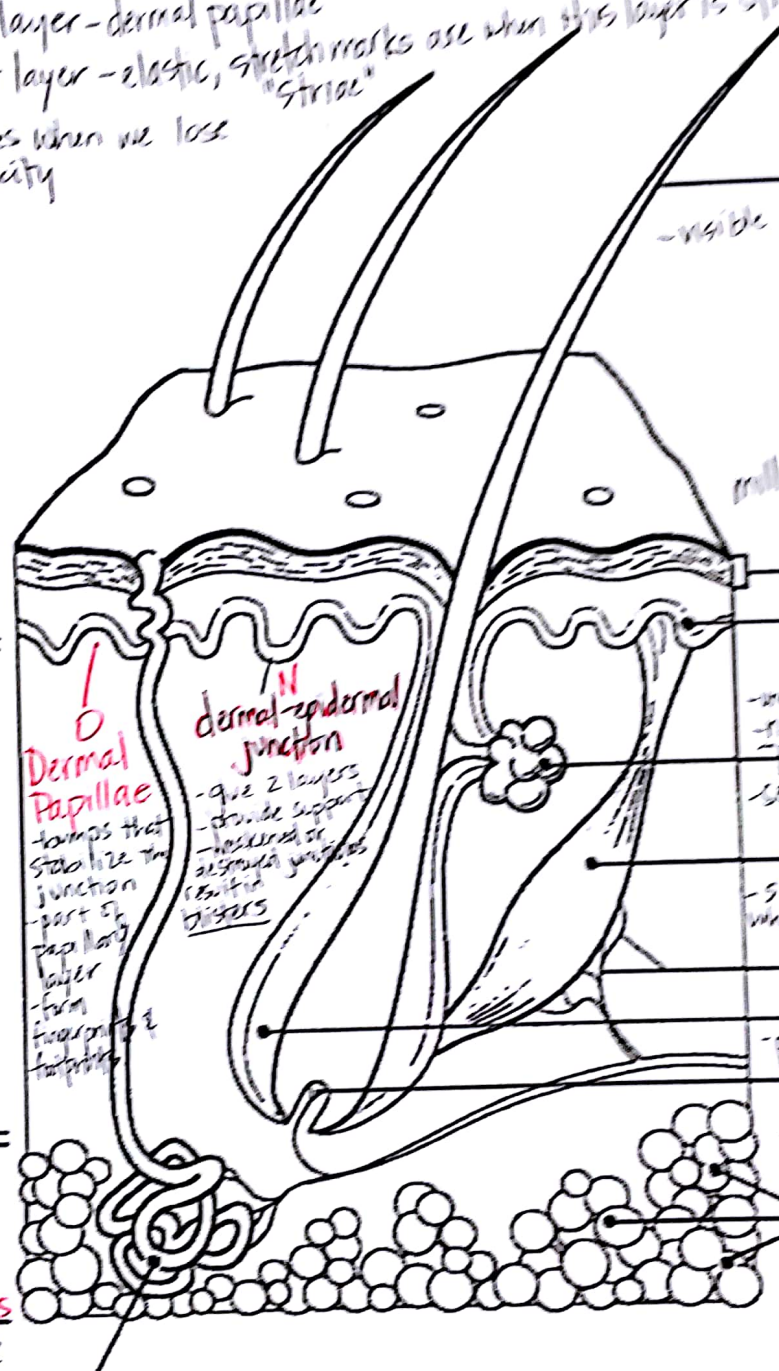 layer - dermal papillae
layer - elastic, stretch marks are when this layer is
"striae"
when we lose
-visible
O
Dermal
Papillae
-bumps that
stabilize the
junction
-part of
papillary
layer
-form
fingerprints &
footprints
N
dermal-epidermal
junction
-glue 2 layers
-provide support
-weakened or
destroyed junctions
result in
blisters